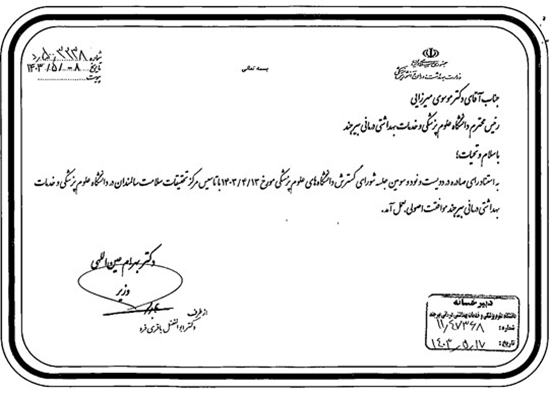 بسمه تعالی
جمهوری اسلامی ایران
وزارت بهداشت، درمان و آموزش پزشکی
شماره ۵۰۰/۳۳۳۸/د
تاریخ ۱۴۰۳/۵/۰۸
پیوست
جناب آقای دکتر موسوی میرزایی
رئیس محترم دانشگاه علوم پزشکی و خدمات بهداشتی درمانی بیرجند
با سلام و تحیات؛
به استناد رای صادره در دویست و نود و سومین جلسه شورای گسترش دانشگاه‌های علوم پزشکی مورخ ۱۴۰۳/۴/۱۳ با تاسیس مرکز تحقیقات سلامت سالمندان در دانشگاه علوم پزشکی و خدمات
بهداشتی درمانی بیرجند موافقت اصولی بعمل آمد.
دکتر بهرام عین اللهی
وزیر
از طرف
دکتر ابوالفضل باقری فرد
دبیرخانه
دانشگاه علوم پزشکی و خدمات بهداشتی درمانی بیرجند
شماره: ۱۱/۴۷۳۶۸
تاریخ: ۱۴۰۳.۵.۱۷